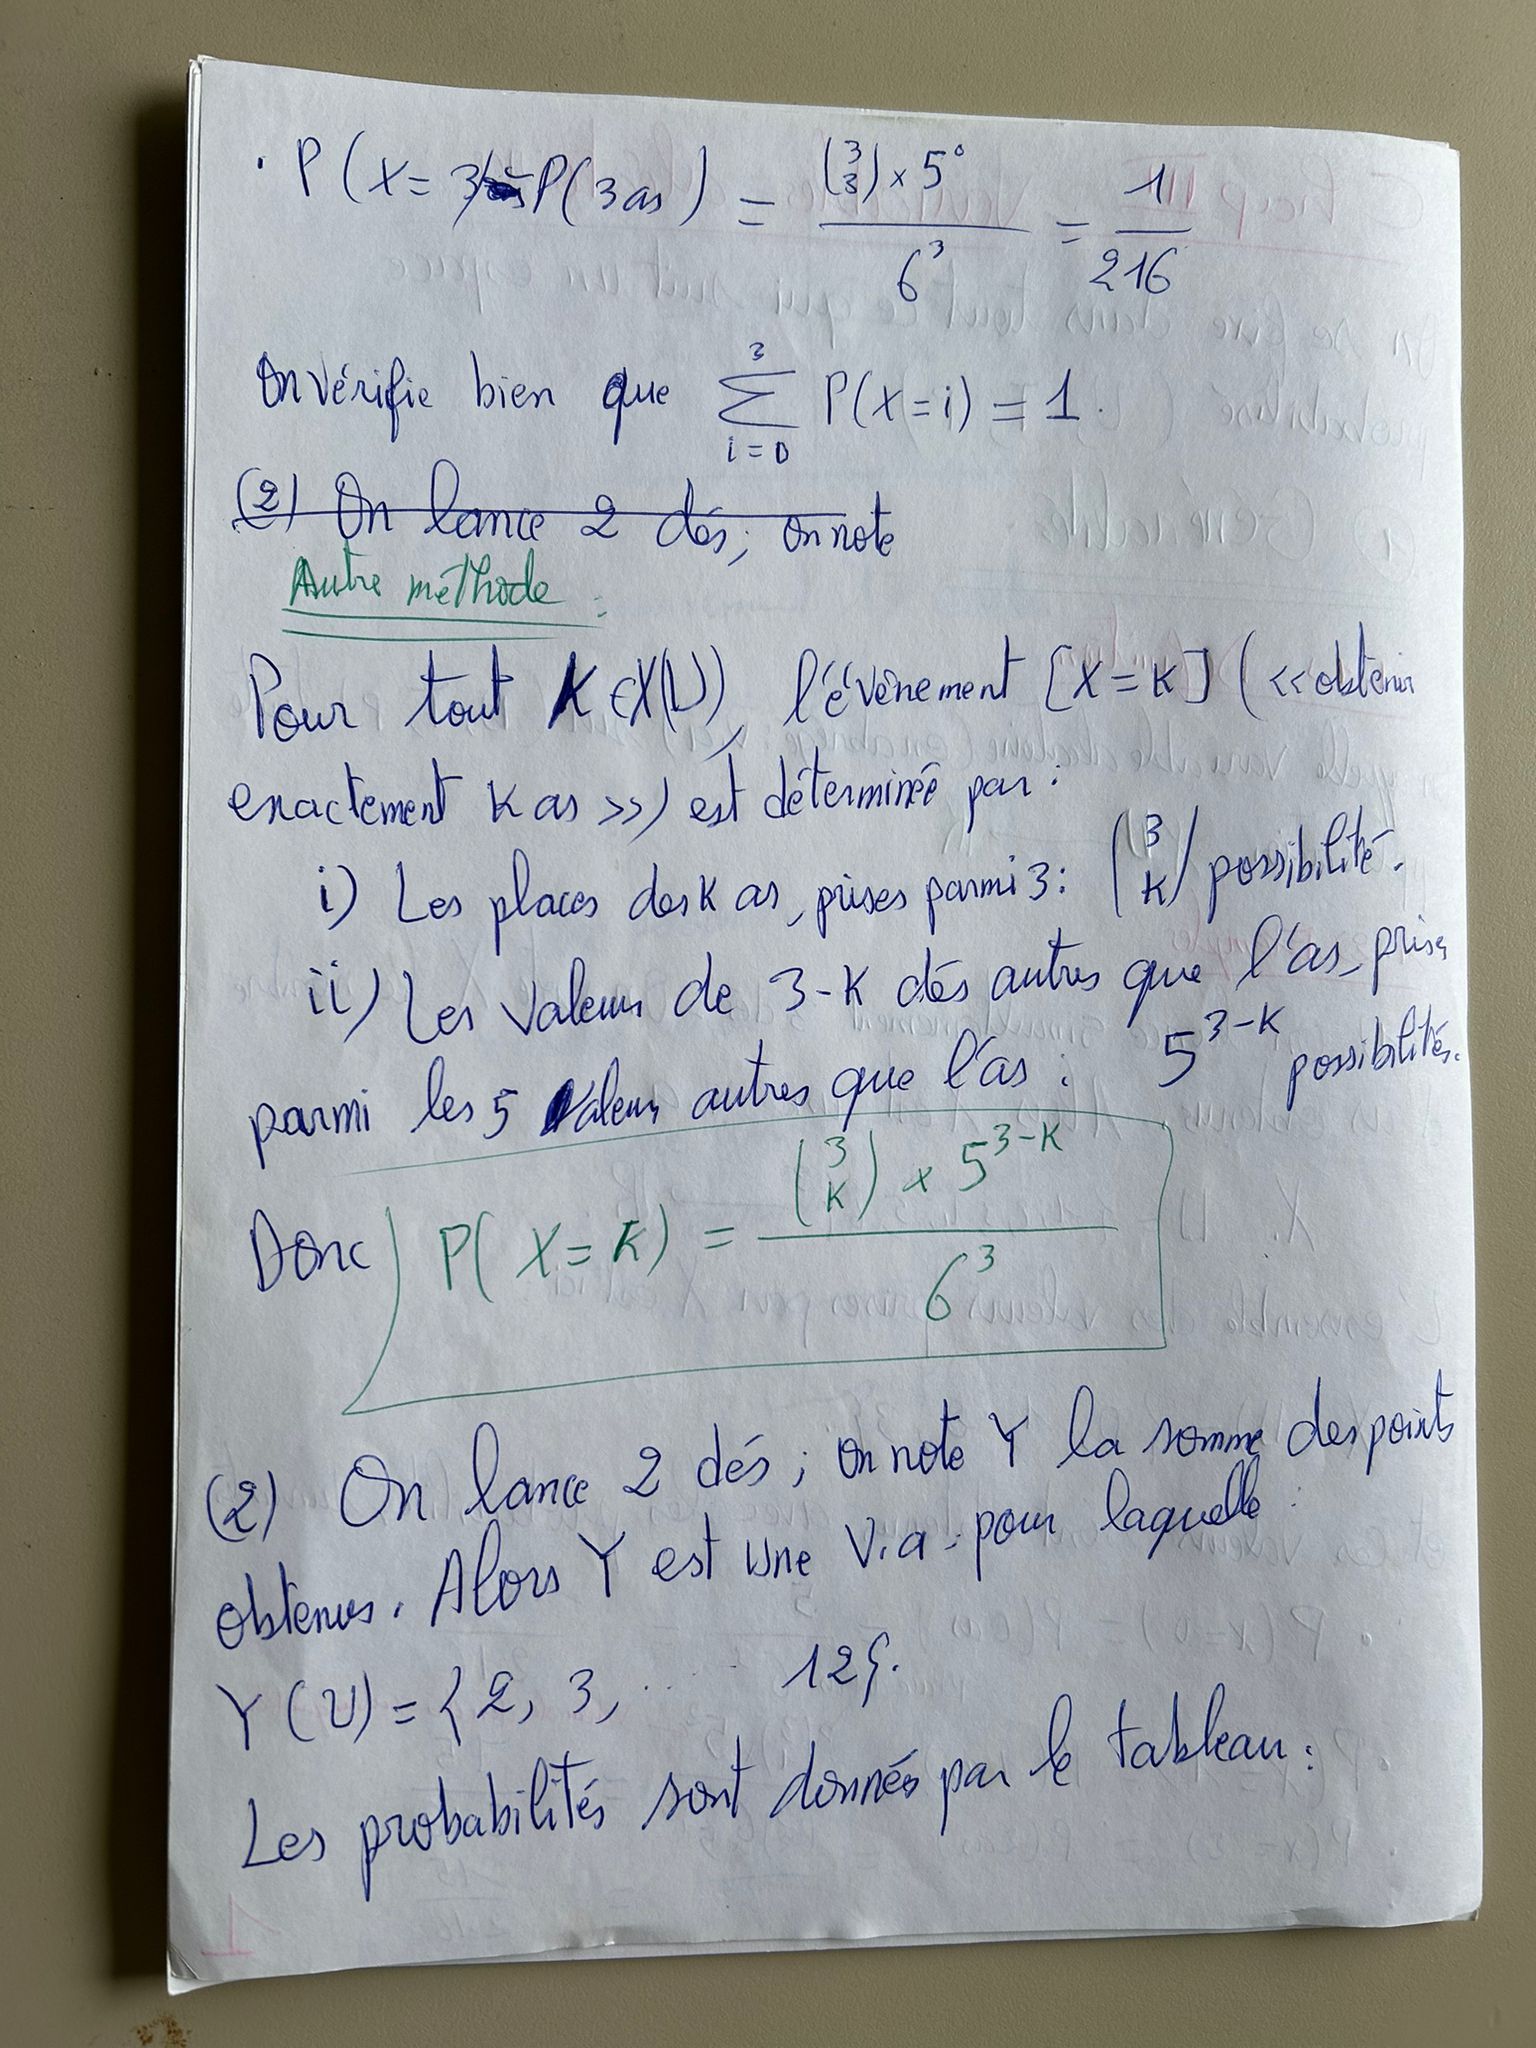 . P(X=3) = P(3 as) = \frac{\binom{3}{3} × 5^0}{6^3} = \frac{1}{216}
On vérifie bien que \sum_{i=0}^{3} P(X=i) = 1.
(2) On lance 2 dés ; on note
Autre méthode :
Pour tout K ∈ X(U), l'évènement [X=K] (<<obtenir
exactement K as >>) est déterminée par :
i) Les places des K as, prises parmi 3 : \binom{3}{K} possibilité.
ii) Les valeurs de 3-K dés autres que l'as, prises
parmi les 5 valeurs autres que l'as : 5^{3-K} possibilités.
Donc P(X=K) = \frac{\binom{3}{K} × 5^{3-K}}{6^3}
(2) On lance 2 dés ; on note Y la somme des points
obtenus. Alors Y est une v.a. pour laquelle :
Y(U) = {2, 3, ... 12}.
Les probabilités sont données par le tableau :